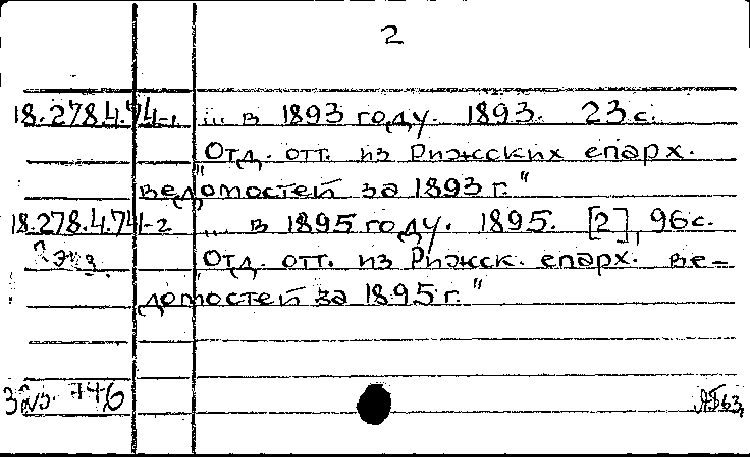 2
18.278.4.74-1 ... в 1893 году. 1893. 23 с.
"Отд. отт. из Рижских епарх.
ведомостей за 1893 г."
18.278.4.74-2 ... в 1895 году. 1895. [2], 96 с.
2 экз. "Отд. отт. из Рижск. епарх. ве-
домостей за 1895 г."